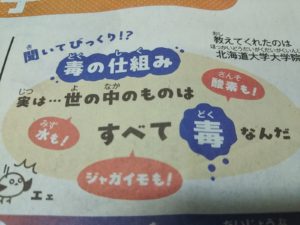 聞いてびっくり!?
毒の仕組み
教えてくれたのは
北海道大学大学院
実は…世の中のものは
酸素も!
水も!
すべて毒なんだ
ジャガイモも!
エェ